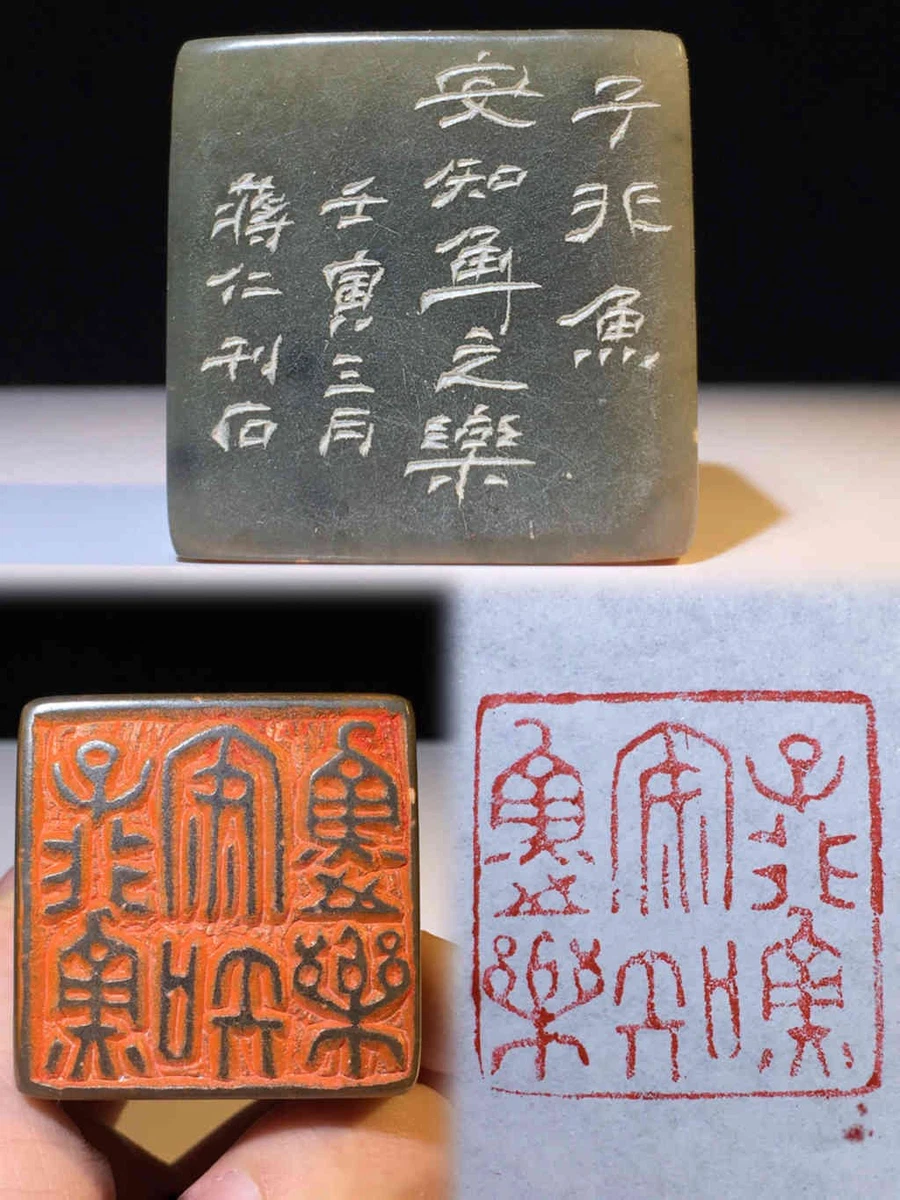 子非魚
安知魚之樂
壬寅三月
蔣仁刊石
子非魚
安知
魚之樂
子非魚
安知
魚之樂